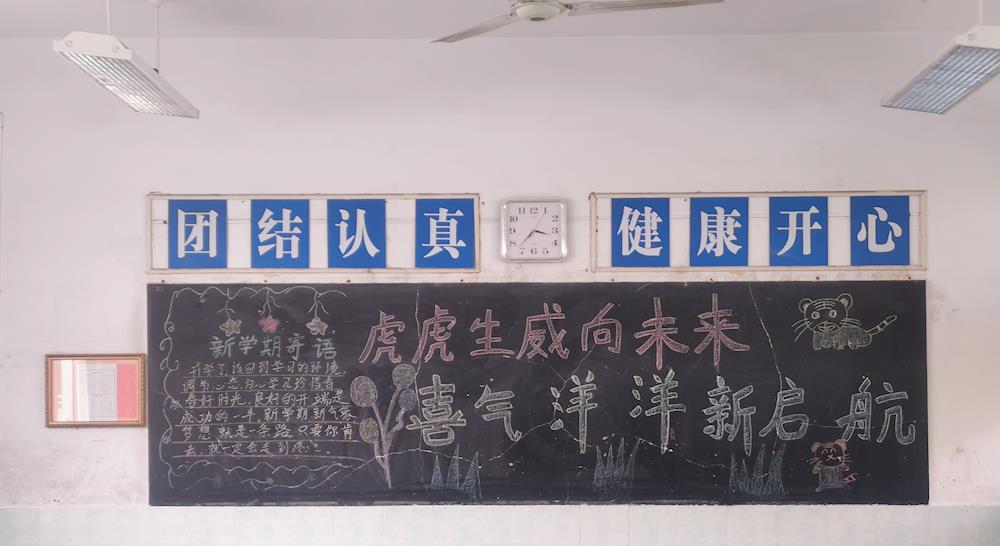 团结认真
健康开心
11 12 1
10 2
9 3
8 4
7 6 5
虎虎生威向未来
喜气洋洋新启航
新学期寄语
开学了,该回到学习的环境,
调节心态,归心学习,珍惜青
春好时光,良好的开端是
成功的一半,新学期新气象
梦想就是条路,只要你肯
去,就一定会走到终点。